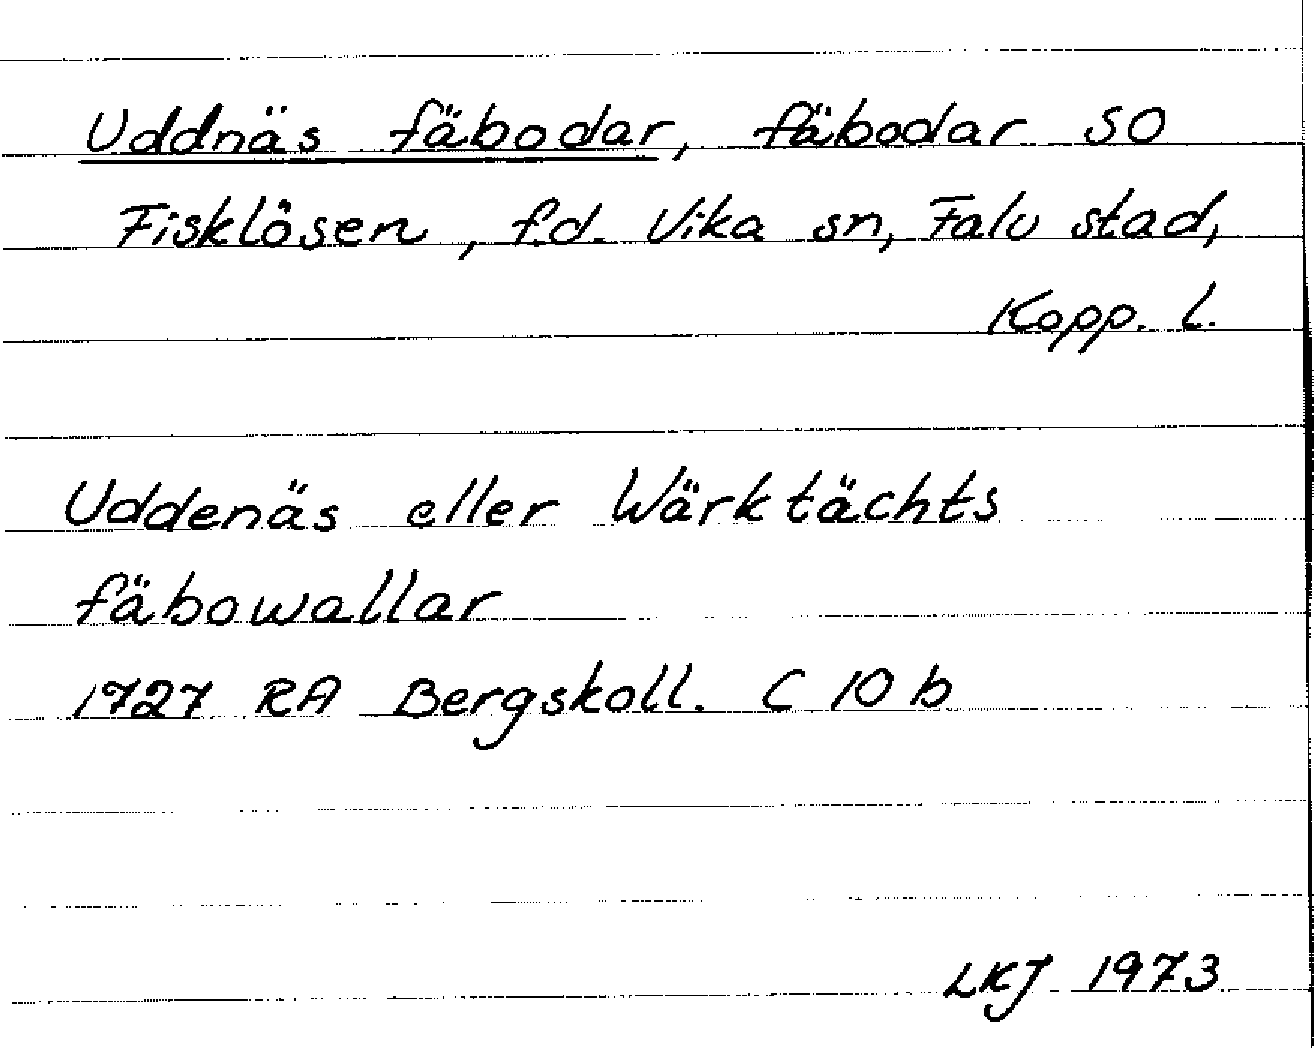 Uddnäs fäbodar, fäbodar SO
Fisklösen, f.d. Vika sn, Falu stad,
Kopp. l.
Uddenäs eller Wärktächts
fäbowallar
1727 RA Bergskoll. C 10 b
LKJ 1973